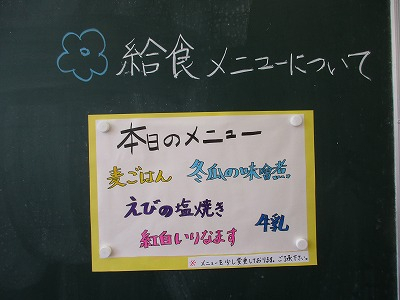 給食メニューについて
本日のメニュー
麦ごはん
冬瓜の味噌煮
えびの塩焼き
牛乳
紅白いりなます
※ メニューを少し変更しております。ご了承下さい。